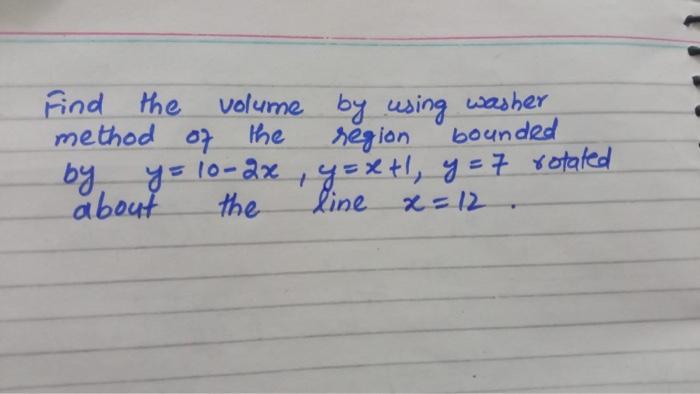 Find the volume by using washer
method of the region bounded
by y = 10 - 2x , y = x + 1, y = 7 rotated
about the line x = 12 .